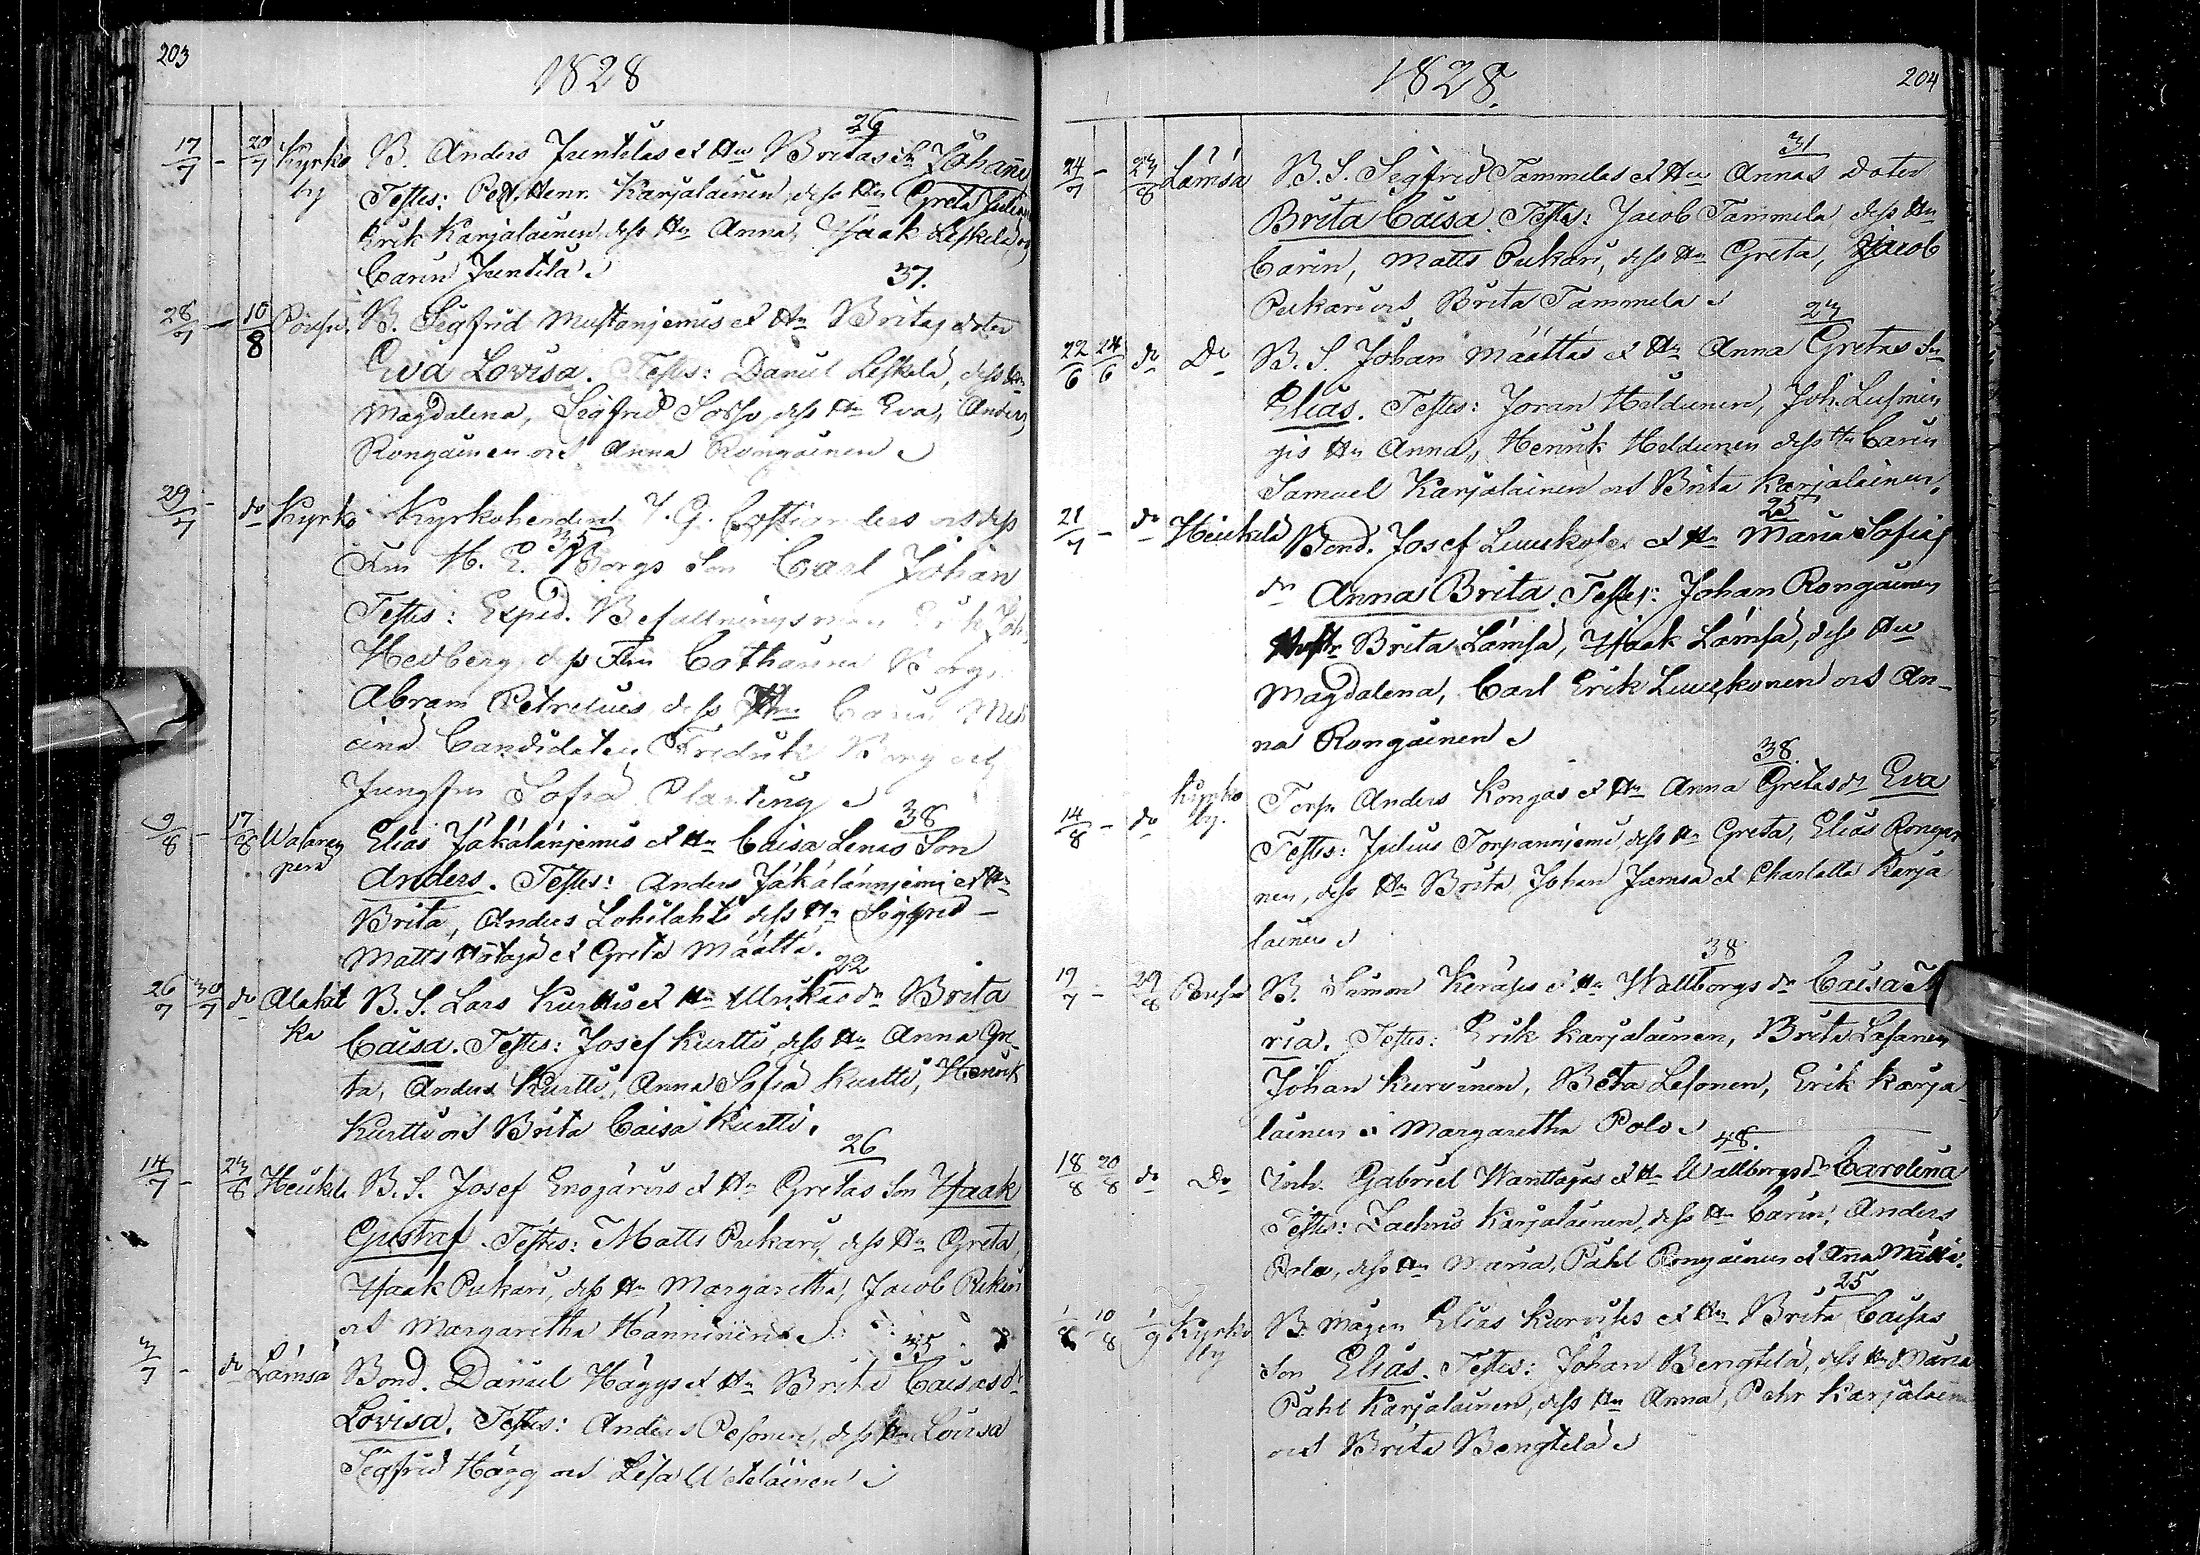 203
1828
26
17/7 - 20/7 Kyrko B. Anders Juntilas et Hu Britas Sn Johan
by Testes: Pet. Henr. Karjalainen, dess Hu Greta
Erik Karjalainen dess Hu Anna, Isaak Leskelä
Carin Juntila
37.
28/7 - 10/8 B. Sigfrid Mustanjemis et Hu Britas doter
Eva Lovisa. Testes: Daniel Leskelä, dess Hu
Magdalena, Sigfrid dess Hu Eva, Anders
Rongainen och Anna Rongainen
29/7 - do Kyrko Kyrkoherden J. G. och dess
35
Fru H. E. Borgs Son Carl Johan
Testes: Exped. Befallningsman
Hedberg, dess Fru Catharina Borg,
Abram dess Hu
cina Candidaten Fredrik Borg och
Jungfru Sofia Planting
38
9/8 - 17/8 Elias Jäkälänjemis et Hu Caisa Lenas Son
perä Anders. Testes: Anders Jäkälännjemi et Hu
Brita, Anders Lohilahti dess Hu Sigfrid
Matts et Greta Määttä.
22
26/7 30/7 do Alakit B. S. Lars Kurttis et Hu Ulrikas dr Brita
ka Caisa. Testes: Josef Kurtti, dess Hu Anna Gre-
ta, Anders Kurtti, Anna Sofia Kurtti, Henrik
Kurtti och Brita Caisa Kurtti.
26
14/7 - 23/8 Heikl. B. S. Josef Enojärvis et Hu Gretas Son Isaak
Gustaf. Testes: Matts Pukari, dess Hu Greta,
Isaak Pukari, dess Hu Margaretha, Jacob Pukari
och Margaretha Hänninen
35
3/7 - do Lämsä Bond. Daniel Häggs et Hu Brita Caisas dr
Lovisa. Testes: Anders Pesonen, dess Hu Lovisa
Sigfrid Hägg och Lisa Wetelainen
1828.
204
31
24/7 - 23/8 Lämsä B. S. Sigfrid Tammelas et Hu Annas doter
Brita Caisa. Testes: Jacob Tammela, dess Hu
Carin, Matts Pukari, dess Hu Greta, Jacob
Pukari och Brita Tammela
23
22/6 24/6 do Do B. S. Johan Määttäs et Hu Anna Gretas Sn
Elias. Testes: Joran Heldunen, Joh.
Hu Anna, Henrik Heldunen dess Hu Carin
Samuel Karjalainen och Brita Karjalainen.
25
21/7 - do Heikelä Bond. Josef et Hu Maria Sofias
dr Anna Brita. Testes: Johan Rongainen
Hustr. Brita Lämsä, Isaak Lämsä, dess Hu
Magdalena, Carl Erik Luuskonen och An-
na Rongainen
38.
14/8 - do Kyrko Torp. Anders Kongas et Hu Anna Gretas dr Eva
by. Testes: Julius Torpannjemi, dess Hu Greta, Elias Rongai
nen, dess Hu Brita Johan Jumsa et Charlatta Karja
lainen
38
19/7 - 29/8 B. Simon Keräs et Hu Wallborgs dr Caisa
ria. Testes: Erik Karjalainen, Brita Lesonen
Johan Kurvinen, Beta Lesonen, Erik Karja
lainen Margaretha Polo
48.
18/8 20/8 do Do Inh. Gabriel Wanttajas et Hu Wallborgs dr Carolina
Testes: Zachris Karjalainen, dess Hu Carin, Anders
Polo, dess Hu Maria, Påhl Rongainen et
25
10/8 1/9 Kyrko B. Mågen Elias Kurvises et Hu Brita Caisas
by Son Elias. Testes: Johan Bengtelä, dess Hu Maria
Påhl Karjalainen, dess Hu Anna, Karjalainen
och Brita Bengtelä